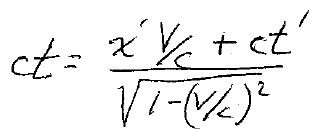 ct = \frac{x' V/c + ct'}{\sqrt{1-(V/c)^2}}